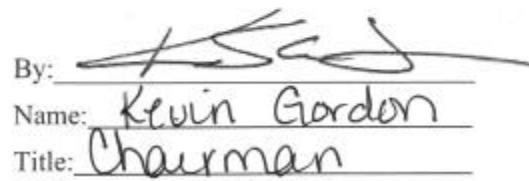 By:
Name: Kevin Gordon
Title: Chairman